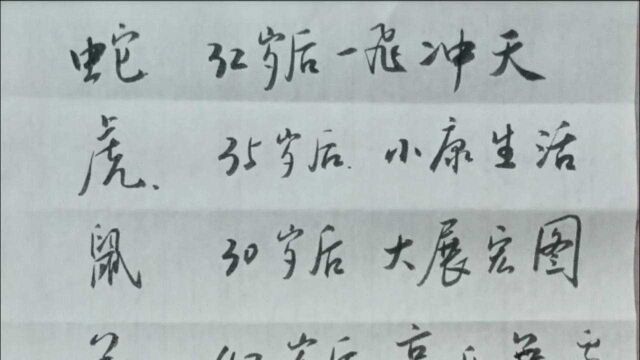 蛇 32岁后一飞冲天
虎. 35岁后. 小康生活
鼠 30岁后 大展宏图
岁后